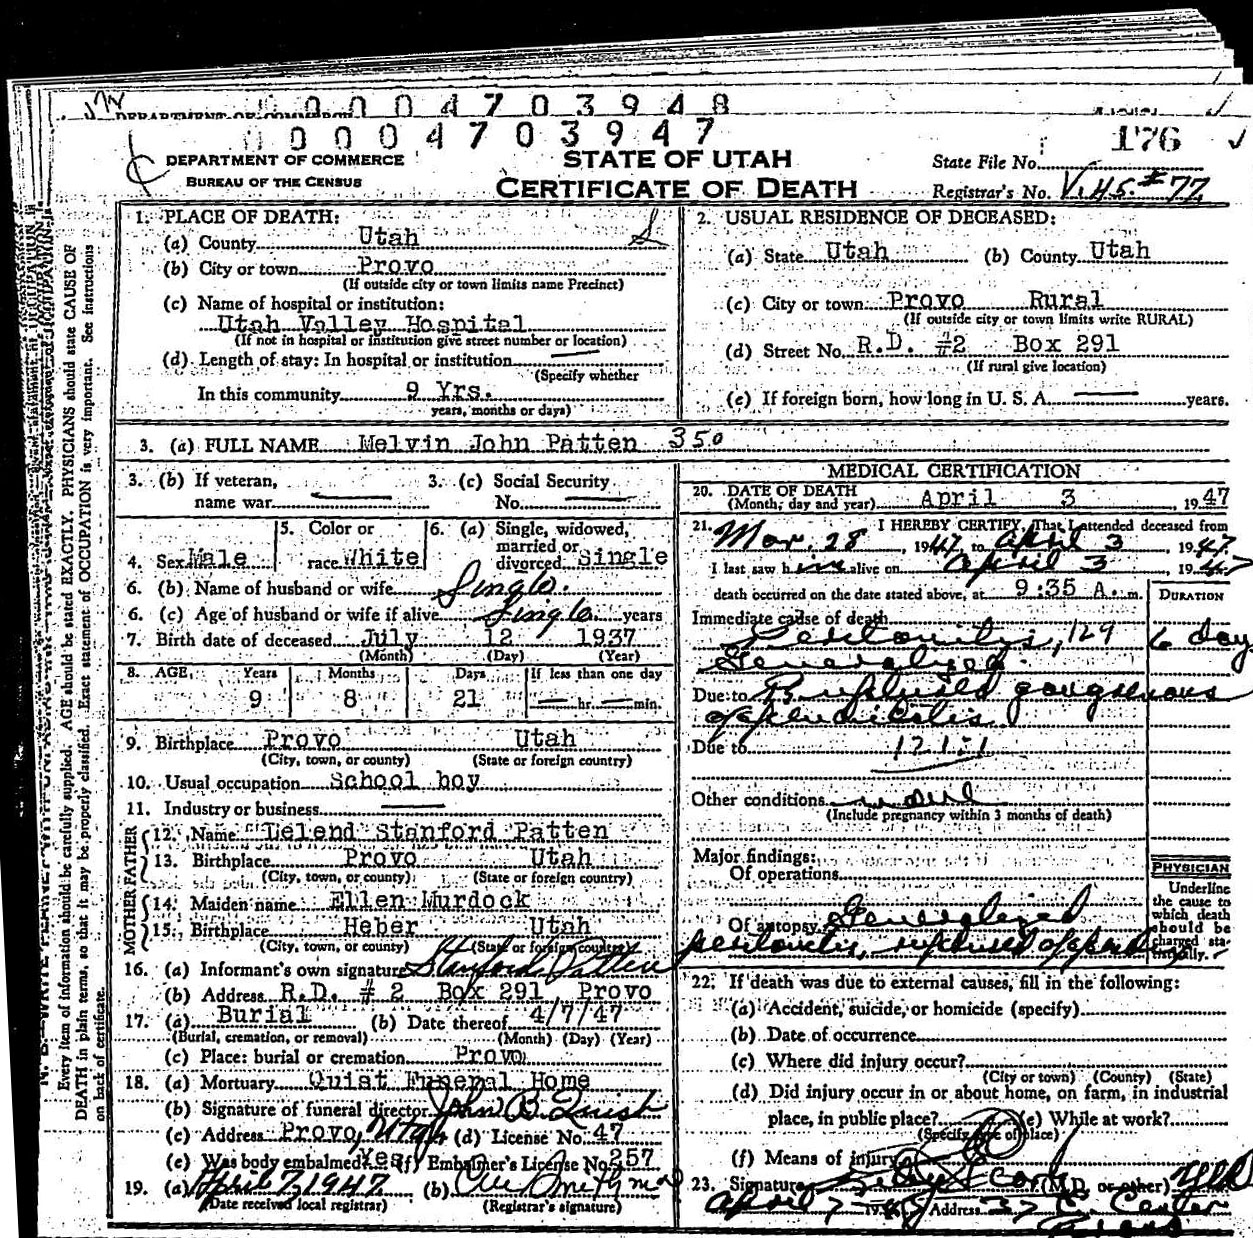 0 0 0 0 4 7 0 3 9 4 8
DEPARTMENT OF COMMERCE
0 0 0 0 4 7 0 3 9 4 7
176
DEPARTMENT OF COMMERCE
BUREAU OF THE CENSUS
STATE OF UTAH
CERTIFICATE OF DEATH
State File No.
Registrar's No. V.H.S. #77
Every item of information should be carefully supplied. AGE should be stated EXACTLY. PHYSICIANS should state CAUSE OF
DEATH in plain terms, so that it may be properly classified. Exact statement of OCCUPATION is very important. See instructions
on back of certificate.
1. PLACE OF DEATH:
(a) County Utah
(b) City or town Provo
(If outside city or town limits name Precinct)
(c) Name of hospital or institution:
Utah Valley Hospital
(If not in hospital or institution give street number or location)
(d) Length of stay: In hospital or institution
(Specify whether
In this community 9 Yrs.
years, months or days)
2. USUAL RESIDENCE OF DECEASED:
(a) State Utah (b) County Utah
(c) City or town Provo Rural
(If outside city or town limits write RURAL)
(d) Street No. R.D. #2 Box 291
(If rural give location)
(e) If foreign born, how long in U. S. A. years.
3. (a) FULL NAME Melvin John Patten 350
3. (b) If veteran, name war
3. (c) Social Security No.
4. Sex Male
5. Color or race White
6. (a) Single, widowed, married or divorced Single
6. (b) Name of husband or wife Single.
6. (c) Age of husband or wife if alive Single years
7. Birth date of deceased July 12 1937
(Month) (Day) (Year)
8. AGE Years Months Days If less than one day
9 8 21 hr. min.
9. Birthplace Provo Utah
(City, town, or county) (State or foreign country)
10. Usual occupation School boy
11. Industry or business
FATHER
12. Name Lelend Stanford Patten
13. Birthplace Provo Utah
(City, town, or county) (State or foreign country)
MOTHER
14. Maiden name Ellen Murdock
15. Birthplace Heber Utah
(City, town, or county) (State or foreign country)
16. (a) Informant's own signature Stanford Patten
(b) Address R.D. # 2 Box 291 Provo
17. (a) Burial (b) Date thereof 4/7/47
(Burial, cremation, or removal) (Month) (Day) (Year)
(c) Place: burial or cremation Provo
18. (a) Mortuary Quist Funeral Home
(b) Signature of funeral director John B. Quist
(c) Address Provo, Utah (d) License No. 47
(e) Was body embalmed? Yes (f) Embalmer's License No. 257
19. (a) April 7, 1947 (b)
(Date received local registrar) (Registrar's signature)
MEDICAL CERTIFICATION
20. DATE OF DEATH
(Month, day and year) April 3 , 1947
21. I HEREBY CERTIFY, That I attended deceased from
Mar. 28 , 1947 to April 3 , 1947
I last saw him alive on April 3 , 1947
death occurred on the date stated above, at 9:35 A. m.
DURATION
Immediate cause of death
Peritonitis, 129 6 day
Generalized.
Due to Ruptured gangrenous
appendicitis
Due to 121:1
Other conditions none
(Include pregnancy within 3 months of death)
Major findings:
Of operations
Of autopsy Generalized
peritonitis, ruptured
PHYSICIAN
Underline
the cause to
which death
should be
charged sta-
tistically.
22. If death was due to external causes, fill in the following:
(a) Accident, suicide, or homicide (specify)
(b) Date of occurrence
(c) Where did injury occur?
(City or town) (County) (State)
(d) Did injury occur in or about home, on farm, in industrial
place, in public place? (e) While at work?
(Specify type of place)
(f) Means of injury
23. Signature (M.D. or other) M.D.
April 7 - Address 37 E. Center
Provo